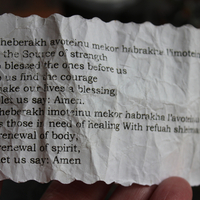 sheberakh avoteinu mekor habrakha l'imotei
the Source of strength
o blessed the ones before us
us find the courage
make our lives a blessing
let us say: Amen.
heberakh imoteinu mekor habrakha l'avotei
s those in need of healing With refuah shlema
renewal of body,
renewal of spirit,
let us say: Amen